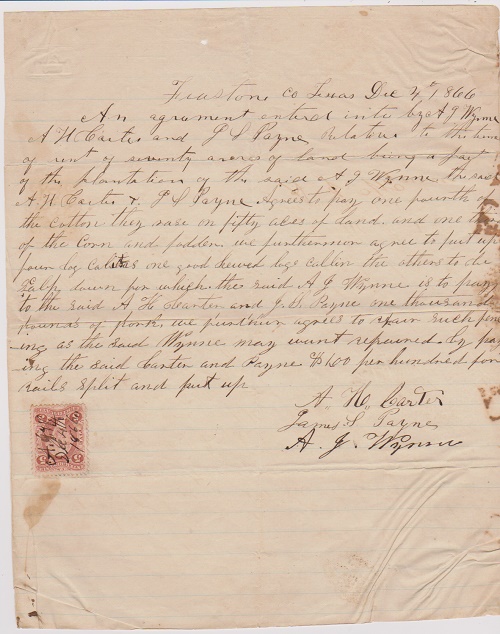 Fruston, Co Texas Dec 4th 1866
An agreement entered into by A J Wynne
A H Carter and J S Payne Relative to the term
of rent of seventy acres of land being a part
of the plantation of the said A J Wynne the said
A H Carter & J S Payne Agrees to pay one fourth of
the cotton they rase on fifty aces of land. and one
of the Corn and fodder, we furthermore agree to put up
four log cabins one good skewed logs cabbin the others to be
down for which the said A J Wynne is to pay
to the said A H Carter and J. S. Payne one thousand
pounds of pork, we further agrees to repair such fen
ing as the said Wynne may want repaired by pay
ing the said Carter and Payne $1.00 per hundred for
rails split and put up
A. H. Carter
James S Payne
A. J. Wynne